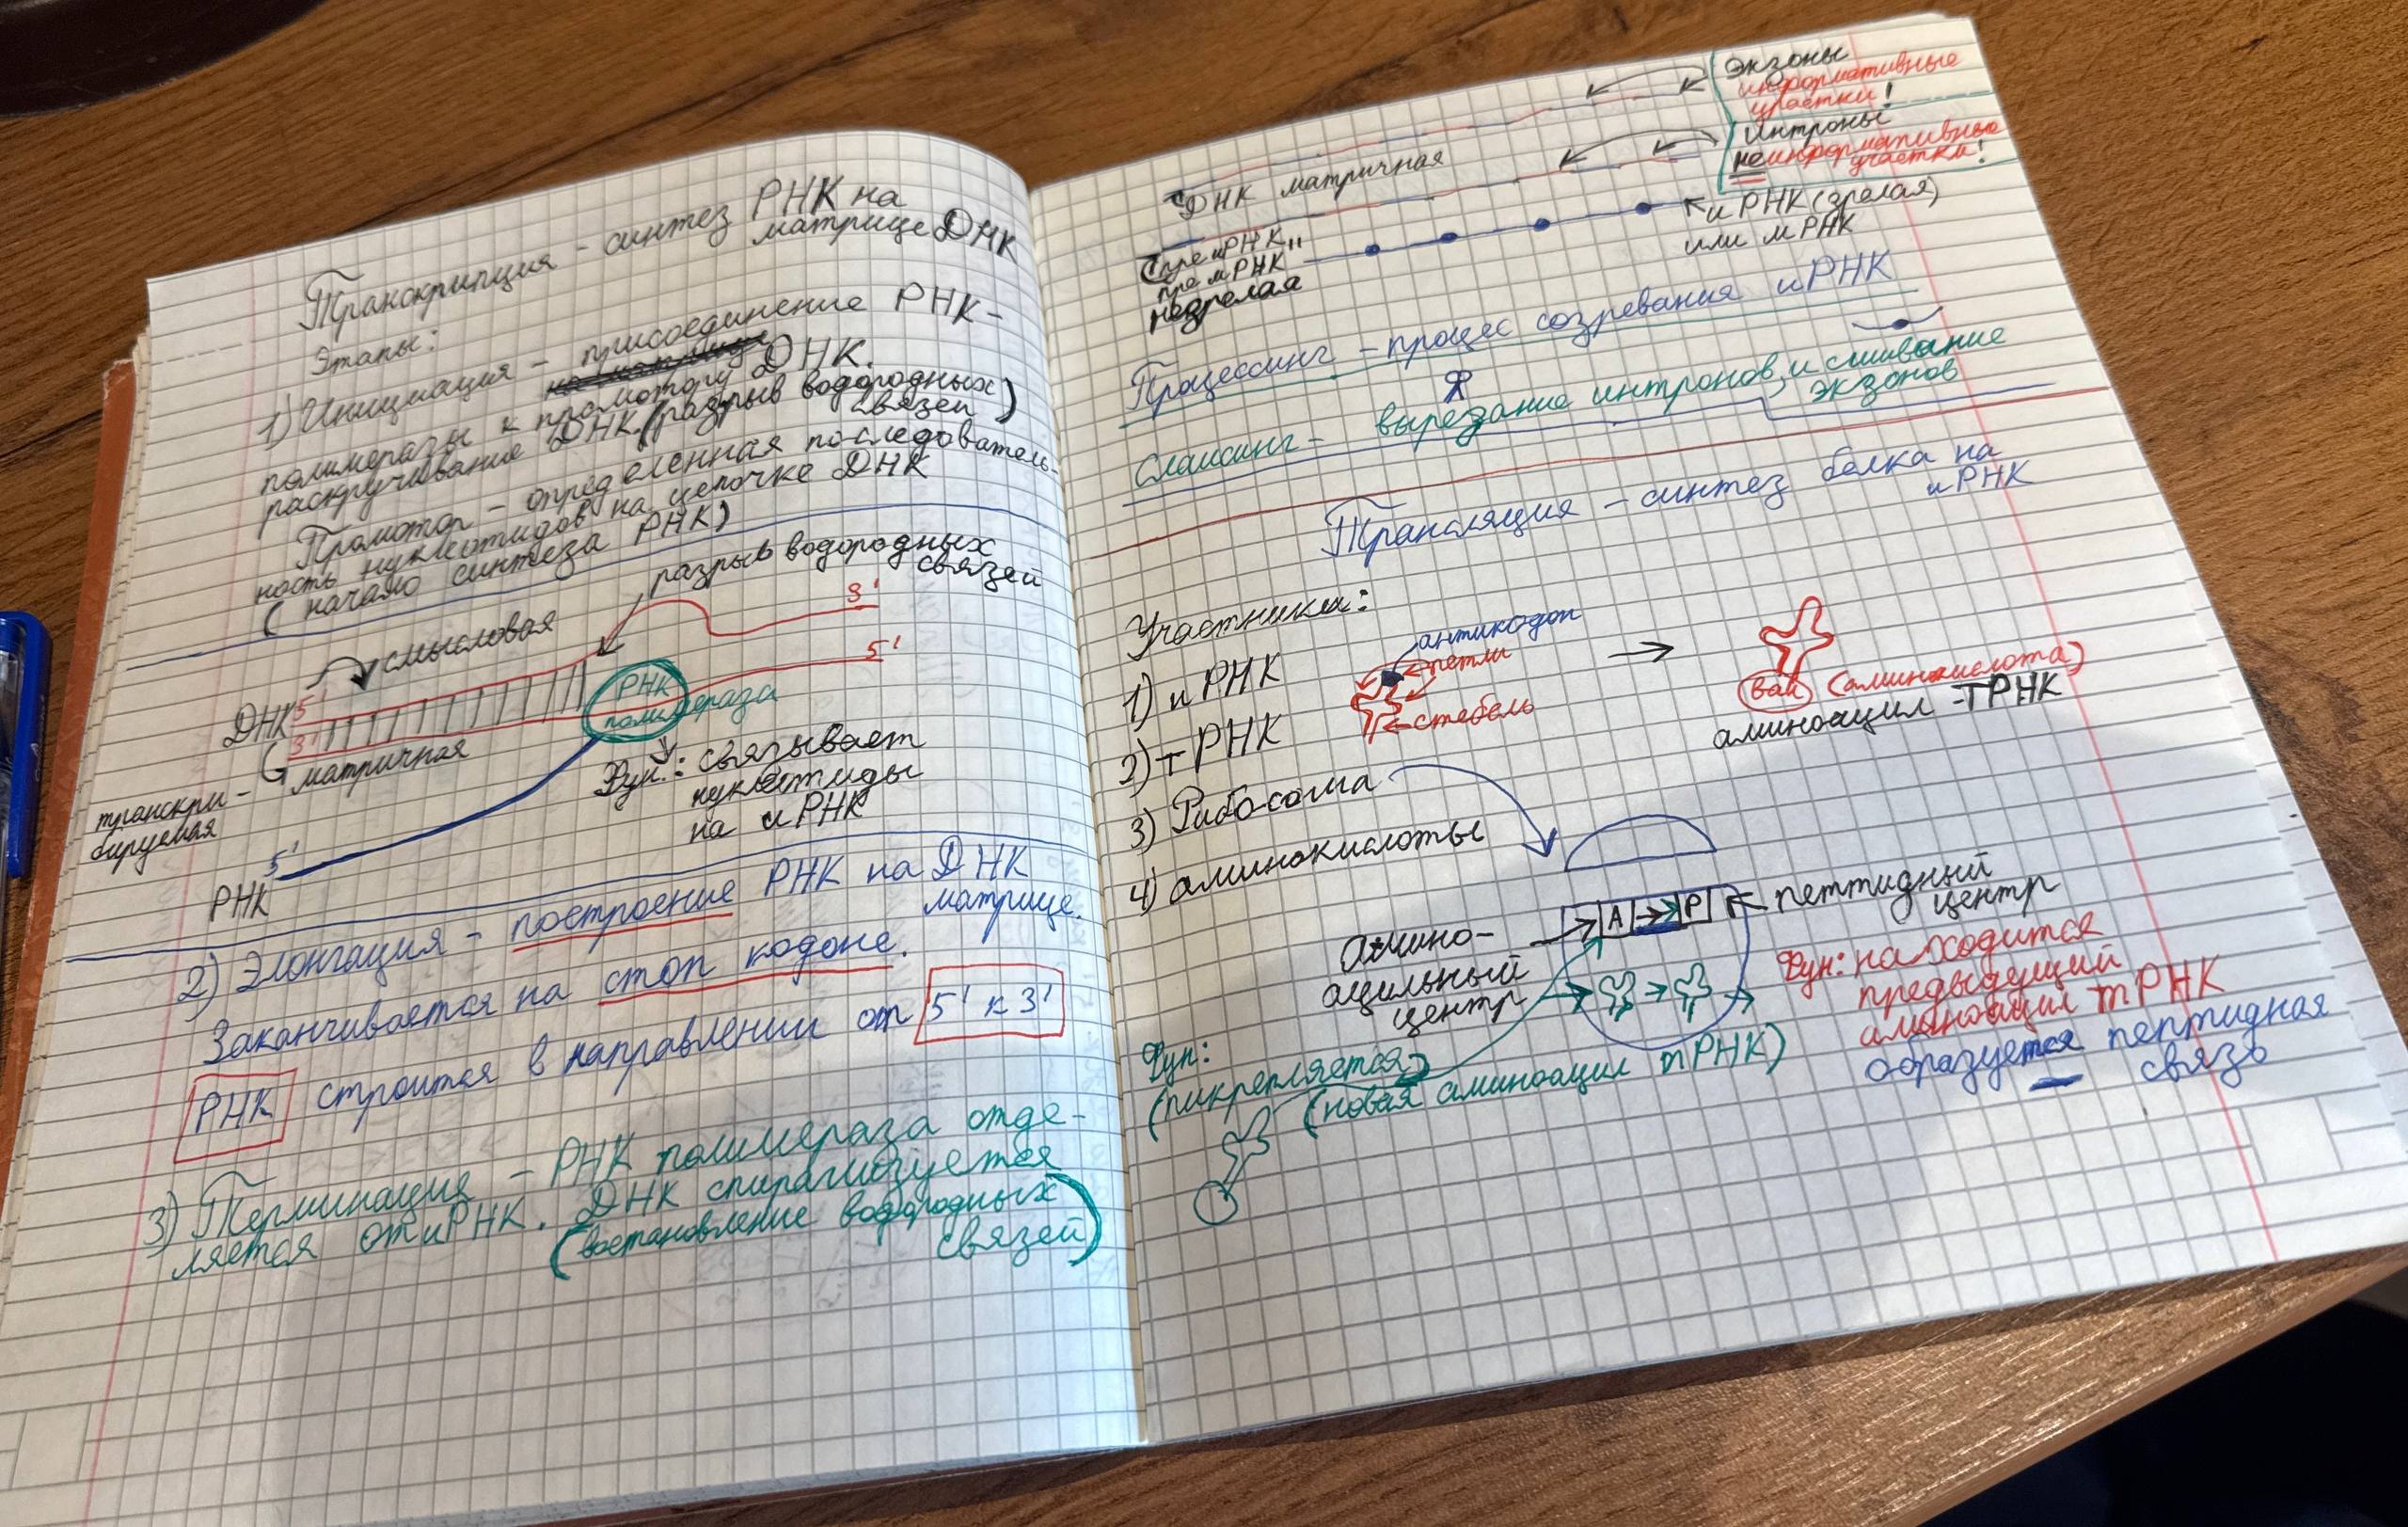 Транскрипция - синтез РНК на
матрице ДНК
Этапы:
1) Инициация - присоединение РНК-
полимеразы к промотору ДНК.
раскручивание ДНК. (разрыв водородных
связей)
Промотор - определенная последователь-
ность нуклеотидов на цепочке ДНК
( начало синтеза РНК)
разрыв водородных
связей
смысловая
3'
5'
ДНК 5'
3'
РНК
полимераза
матричная
транскри-
бируемая
Фун.: связывает
нуклеотиды
на и РНК
5'
РНК
2) Элонгация - построение РНК на ДНК
матрице.
Заканчивается на стоп кодоне.
РНК строится в направлении от 5' к 3'
3) Терминация - РНК полимераза отде-
ляется от иРНК. ДНК спирализуется
(востановление водородных
связей)
экзоны
информативные
участки!
интроны
неинформативные
участки!
ДНК матричная
и РНК (зрелая)
или м РНК
(пре иРНК,,
пре мРНК
незрелая
Процессинг - процес созревания и РНК
Сплайсинг - вырезание интронов, и сшивание
экзонов
Трансляция - синтез белка на
и РНК
Участники:
1) и РНК
2) т РНК
3) Рибосома
4) аминокислоты
антикодон
петли
стебель
вал (аминокислота)
аминоацил -ТРНК
А
Р
пептидный
центр
амино-
ацильный
центр
Фун: находится
предыдущий
аминоацил тРНК
образуется пептидная
связь
Фун:
(прикрепляется)
(новая аминоацил тРНК)